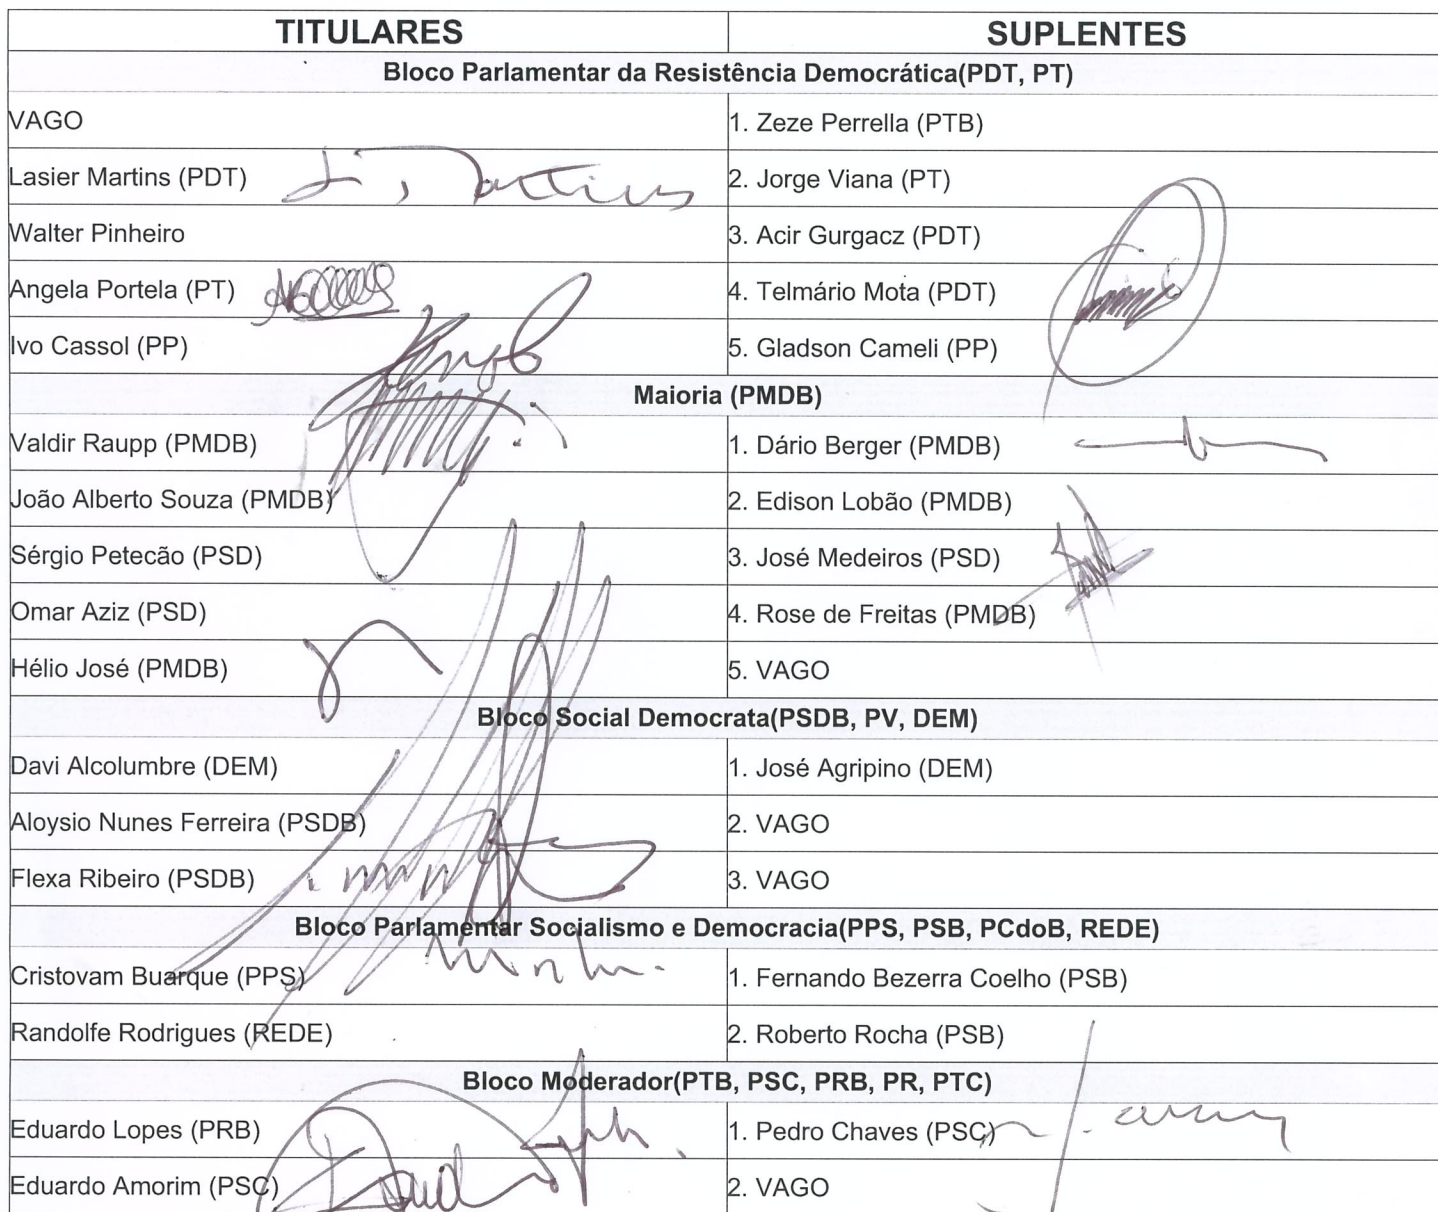 TITULARES SUPLENTES
Bloco Parlamentar da Resistência Democrática(PDT, PT)
VAGO 1. Zeze Perrella (PTB)
Lasier Martins (PDT) 2. Jorge Viana (PT)
Walter Pinheiro 3. Acir Gurgacz (PDT)
Angela Portela (PT) 4. Telmário Mota (PDT)
Ivo Cassol (PP) 5. Gladson Cameli (PP)
Maioria (PMDB)
Valdir Raupp (PMDB) 1. Dário Berger (PMDB)
João Alberto Souza (PMDB) 2. Edison Lobão (PMDB)
Sérgio Petecão (PSD) 3. José Medeiros (PSD)
Omar Aziz (PSD) 4. Rose de Freitas (PMDB)
Hélio José (PMDB) 5. VAGO
Bloco Social Democrata(PSDB, PV, DEM)
Davi Alcolumbre (DEM) 1. José Agripino (DEM)
Aloysio Nunes Ferreira (PSDB) 2. VAGO
Flexa Ribeiro (PSDB) 3. VAGO
Bloco Parlamentar Socialismo e Democracia(PPS, PSB, PCdoB, REDE)
Cristovam Buarque (PPS) 1. Fernando Bezerra Coelho (PSB)
Randolfe Rodrigues (REDE) 2. Roberto Rocha (PSB)
Bloco Moderador(PTB, PSC, PRB, PR, PTC)
Eduardo Lopes (PRB) 1. Pedro Chaves (PSC)
Eduardo Amorim (PSC) 2. VAGO